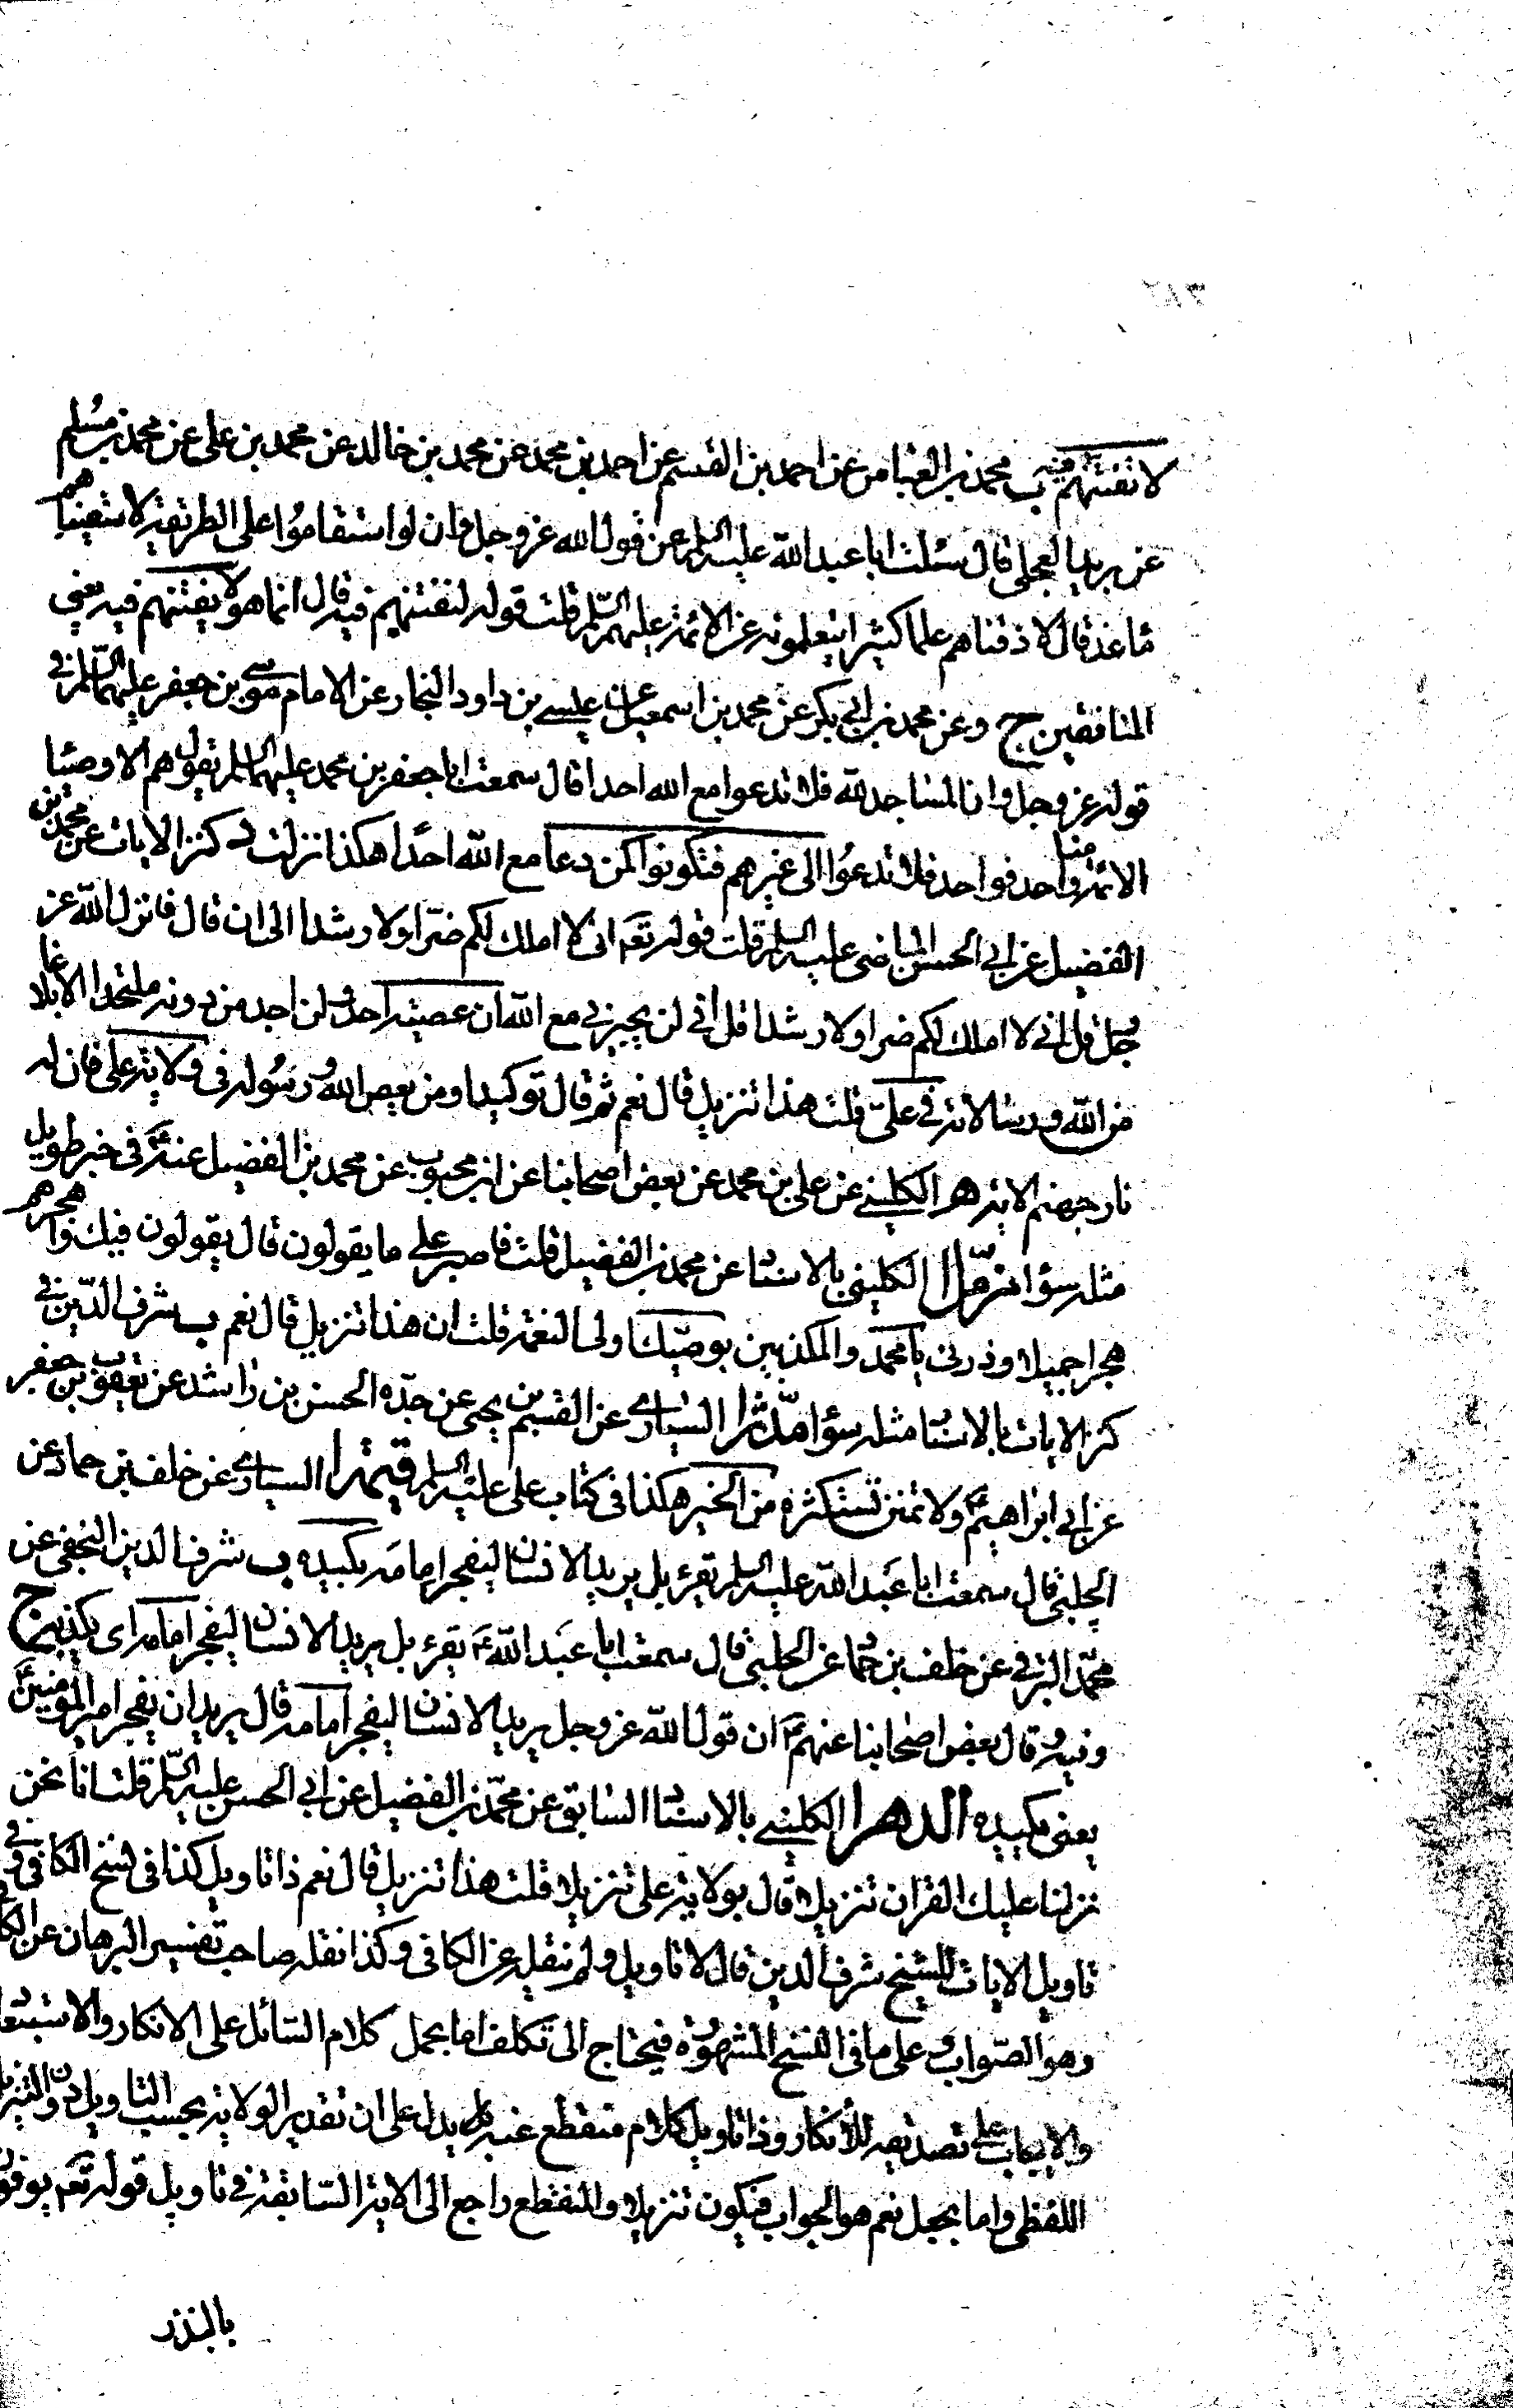 لا نفتنهم فيه ب محمد بن العباس عن احمد بن القسم عن احمد بن محمد عن محمد بن خالد عن محمد بن علي عن محمد بن مسلم
عن بريد العجلي قال سئلت ابا عبد الله عليه السلم عن قول الله عز وجل وان لو استقاموا على الطريقة لاسقيناهم
ماء غدقا قال لاذقناهم علما كثيرا يتعلمونه عن الائمة عليهم السلم قلت قوله لنفتنهم فيه قال انما هو لا يفتنهم فيه يعني
المنافقين ج وعن محمد بن ابي بكر عن محمد بن اسمعيل عن عيسى بن داود النجار عن الامام موسى بن جعفر عليهما السلم في
قوله عز وجل وان المساجد لله فلا تدعوا مع الله احدا قال سمعت ابا جعفر بن محمد عليهما السلم يقول هم الاوصياء
الائمة منا واحد فواحد فلا تدعوا الى غيرهم فتكونوا كمن دعا مع الله احدا هكذا نزلت د كنز الايات عن محمد بن
الفضيل عن ابي الحسن الماضي عليه السلم قلت قوله تعه انى لا املك لكم ضرا ولا رشدا الى ان قال فانزل الله عز
وجل قل اني لا املك لكم ضرا ولا رشدا قل اني لن يجيرني مع الله ان عصيته احد ولن اجد من دونه ملتحدا الا بلاغا
من الله ورسالاته في علي قلت هذا تنزيل قال نعم ثم قال توكيدا ومن يعص الله ورسوله في ولاية علي فان له
نار جهنم الاية هـ الكليني عن علي بن محمد عن بعض اصحابنا عن ابن محبوب عن محمد بن الفضيل عنه ع في خبر طويل
مثله سؤا مزمل ا الكليني بالاسناد عن محمد بن الفضيل قلت فاصبر على ما يقولون قال يقولون فيك واهجرهم
هجرا جميلا وذرني يا محمد والمكذبين بوصيك اولى النعمة قلت ان هذا تنزيل قال نعم ب شرف الدين في
كنز الايات بالاسناد مثله سؤا مدثر ا السياري عن القسم بن يحيى عن جده الحسن بن راشد عن يعقوب بن جعفر
عن ابي ابراهيم ع ولا تمنن تستكثره من الخير هكذا في كتاب علي عليه السلم قيمة ا السياري عن خلف بن حماد عن
الحلبي قال سمعت ابا عبد الله عليه السلم يقرء بل يريد الانسان ليفجر امامه بكيده ب شرف الدين النجفي عن
محمد البرقي عن خلف بن حماد عن الحلبي قال سمعت ابا عبد الله ع يقرء بل يريد الانسان ليفجر امامه اي يكذبه ج
وفيه وقال بعض اصحابنا عنهم ع ان قول الله عز وجل يريد الانسان ليفجر امامه قال يريد ان يفجر امير المؤمنين ع
يعنى بكيده الدهر ا الكليني بالاسناد السابق عن محمد بن الفضيل عن ابي الحسن عليه السلم قلت انا نحن
نزلنا عليك القران تنزيلا قال بولاية علي تنزيلا قلت هذا تنزيل قال نعم ذا تاويل كذا في نسخ الكافي وفي
تاويل الايات للشيخ شرف الدين قال لا تاويل ولم ينقله عن الكافي وكذا نقله صاحب تفسير البرهان عن الكا
وهو الصواب وعلى ما في النسخ المشهورة فيحتاج الى تكلف اما بحمل كلام السائل على الانكار والاستبعا
والايجاب على تصديقه للانكار وذا تاويل كلام منقطع عنه يدل على ان تقدير الولاية بحسب التاويل دون التنزيل
اللفظي واما بجعل نعم هو الجواب فيكون تنزيلا والمنقطع راجع الى الاية السابقة في تاويل قوله تعه يوفون
بالنذر